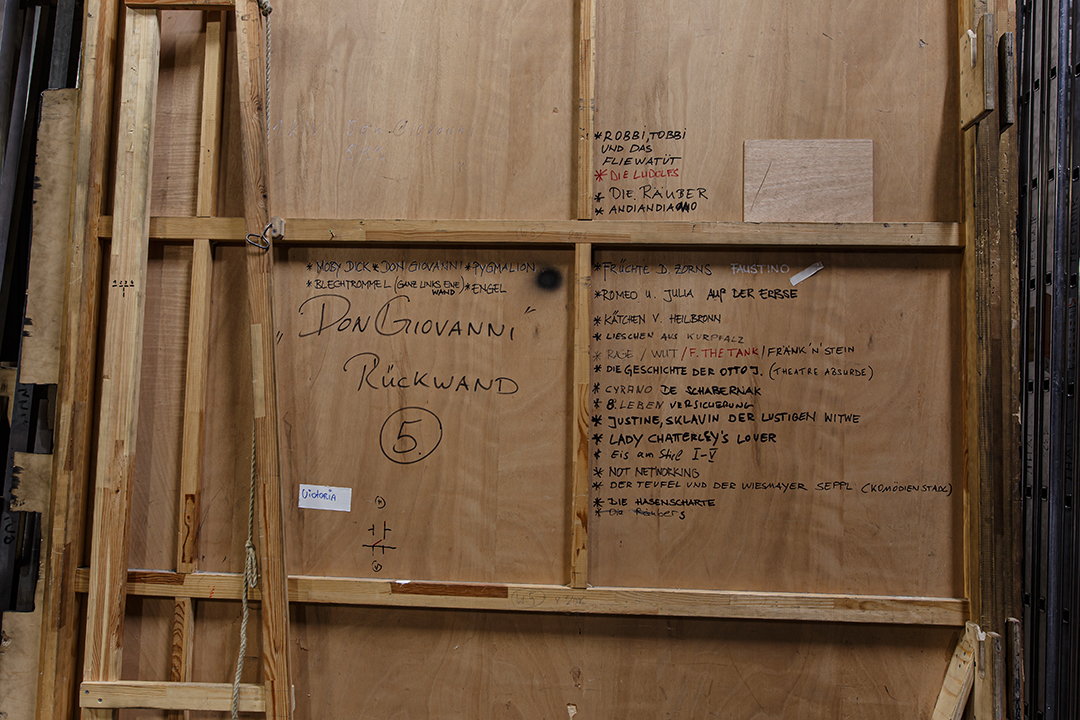 Don Giovanni
*ROBBI, TOBBI
UND DAS
FLIEWATÜT
*DIE LUDOLFS
* DIE RÄUBER
* ANDIANDIA
*MOBY DICK *DON GIOVANNI *PYGMALION
*BLECHTROMMEL (GANZ LINKS EINE WAND) *ENGEL
"DON GIOVANNI"
RÜCKWAND
5.
Victoria
*FRÜCHTE D. ZORNS FAUSTINO
*ROMEO U. JULIA AUF DER ERBSE
*KÄTCHEN V. HEILBRONN
* LIESCHEN AUS KURPFALZ
* RAGE / WUT / F. THE TANK / FRÄNK'N'STEIN
* DIE GESCHICHTE DER OTTO J. (THEATRE ABSURDE)
* CYRANO DE SCHABERNAK
* 8. LEBEN VERSICHERUNG
* JUSTINE, SKLAVIN DER LUSTIGEN WITWE
* LADY CHATTERLEY'S LOVER
* Eis am Stiel I-V
* NOT NETWORKING
* DER TEUFEL UND DER WIESMAYER SEPPL (KOMÖDIENSTADL)
* DIE HASENSCHARTE
* Die Räubers